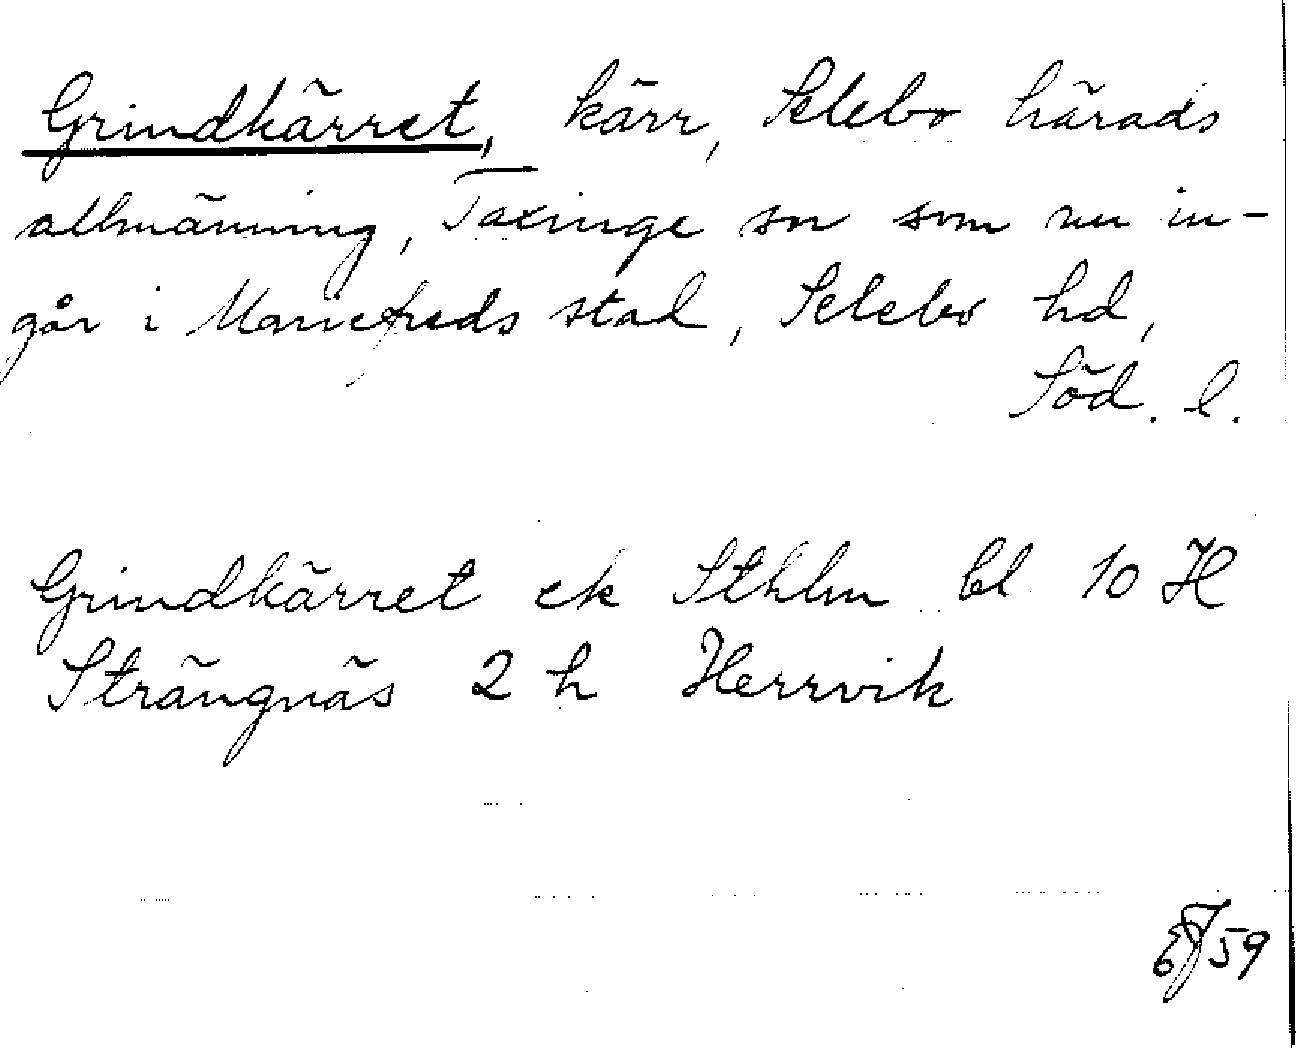 Grindkärret, kärr, Selebo härads
allmänning, Taxinge sn som nu in-
går i Mariefreds stad, Selebo hd,
Söd. l.
Grindkärret ek Sthlm bl 10 H
Strängnäs 2 h Herrvik
59